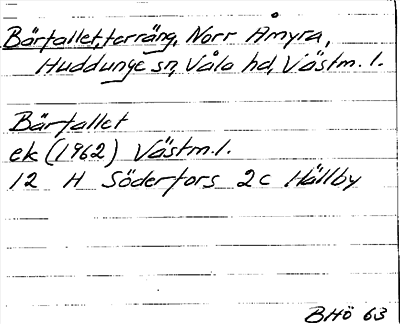 Bärfallet, terräng, Norr Åmyra,
Huddunge sn, Våla hd, Västm. l.
Bärfallet
ek (1962) Västm.l.
12 H Söderfors 2c Hällby
BHö 63